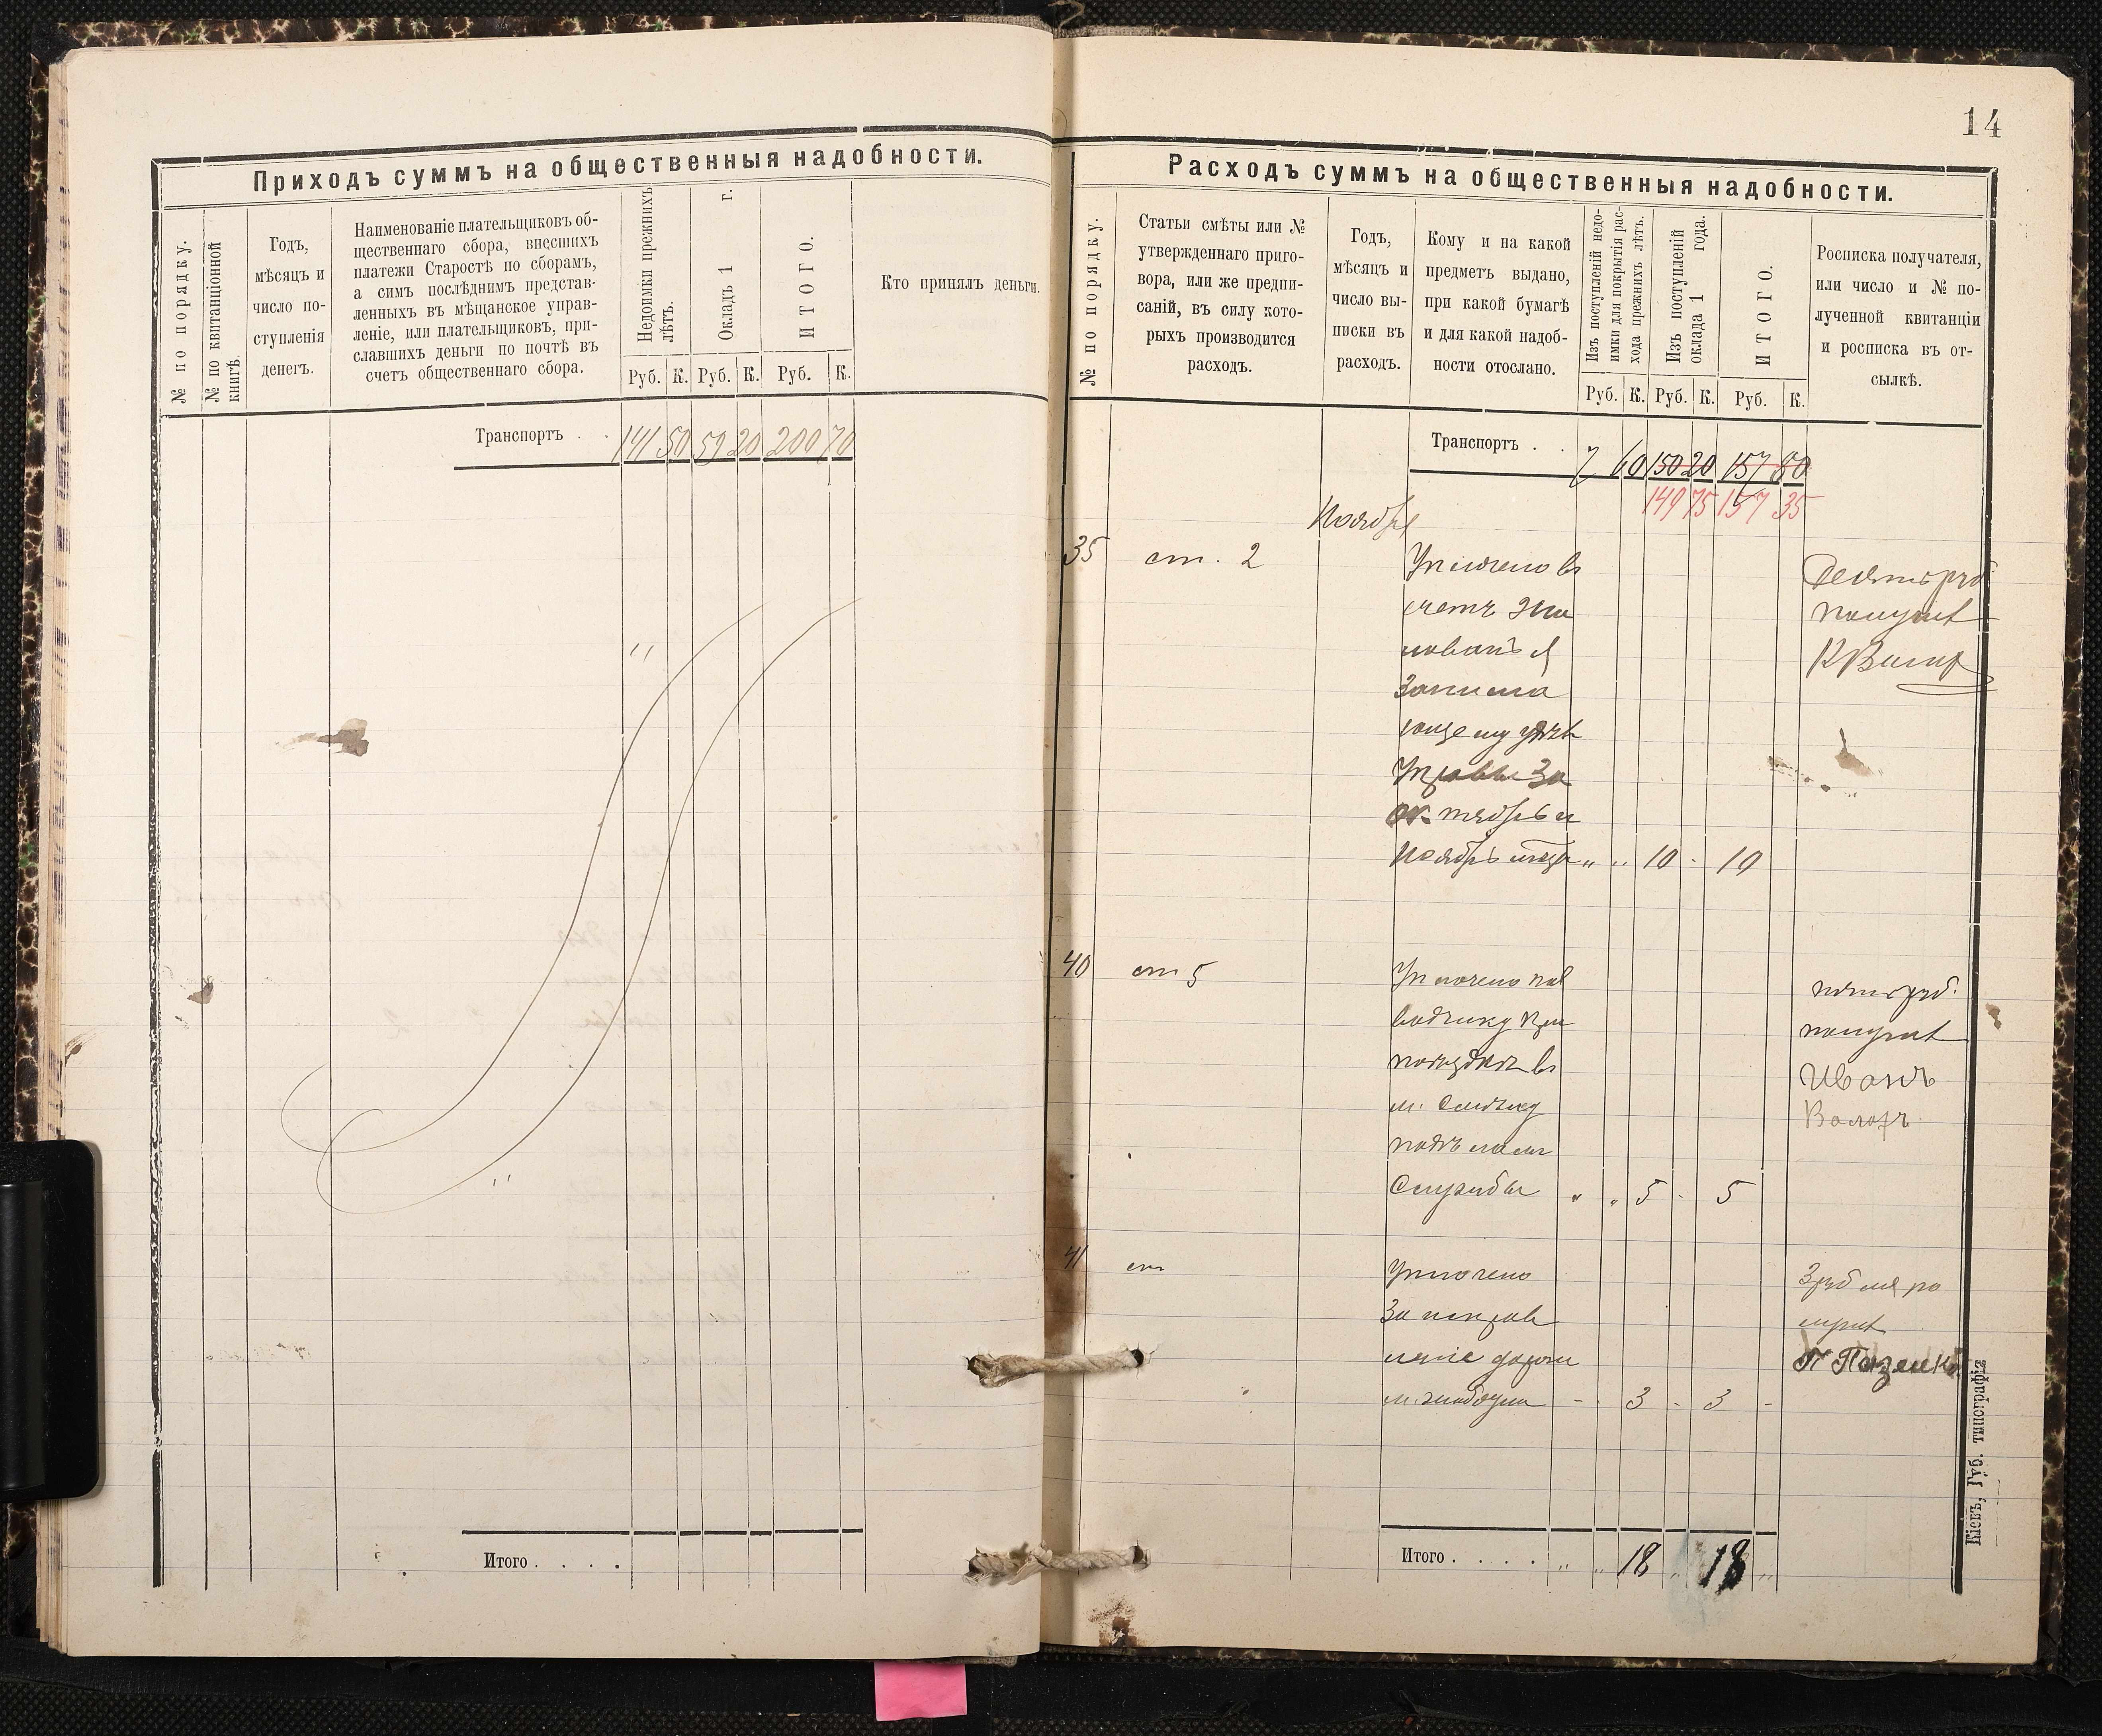 14
Приходъ суммъ на общественныя надобности.
№ по порядку.
№ по квитанціонной
книгѣ.
Годъ,
мѣсяцъ и
число по-
ступленія
денегъ.
Наименованіе плательщиковъ об-
щественнаго сбора, внесшихъ
платежи Старостѣ по сборамъ,
а симъ послѣднимъ представ-
ленныхъ въ мѣщанское управ-
леніе, или плательщиковъ, при-
славшихъ деньги по почтѣ въ
счетъ общественнаго сбора.
Недоимки прежнихъ
лѣтъ.
Окладъ 1 г.
ИТОГО.
Руб. К. Руб. К. Руб. К.
Кто принялъ деньги.
Транспортъ . . 141 50 59 20 200 70
Итого . . . .
Расходъ суммъ на общественныя надобности.
№ по порядку.
Статьи смѣты или №
утвержденнаго приго-
вора, или же предпи-
саній, въ силу кото-
рыхъ производится
расходъ.
Годъ,
мѣсяцъ и
число вы-
писки въ
расходъ.
Кому и на какой
предметъ выдано,
при какой бумагѣ
и для какой надоб-
ности отослано.
Изъ поступленій недо-
имки для покрытія рас-
хода прежнихъ лѣтъ.
Изъ поступленій
оклада 1 года.
ИТОГО.
Руб. К. Руб. К. Руб. К.
Росписка получателя,
или число и № по-
лученной квитанціи
и росписка въ от-
сылкѣ.
Транспортъ . . 7 60 150 20 157 80
149 75 157 35
Ноябрь
35 ст. 2 Уплочено въ
счетъ жа
лованья
Занима
ющему
Управы за
октябрь и
Ноябрь " " 10 - 10
Десять руб
получилъ
40 ст 5 Уплочено
водчику при
поѣздкѣ въ
м.
подѣламъ
Службы " " 5 - 5
пять руб.
получилъ
Иванъ
41 ст Уплочено
За исправ
леніе дороги
м. - 3 - 3 -
3 рубля по
лучилъ
Итого . . . . " " 18 " 18 "
Кіевъ, Губ. типографія